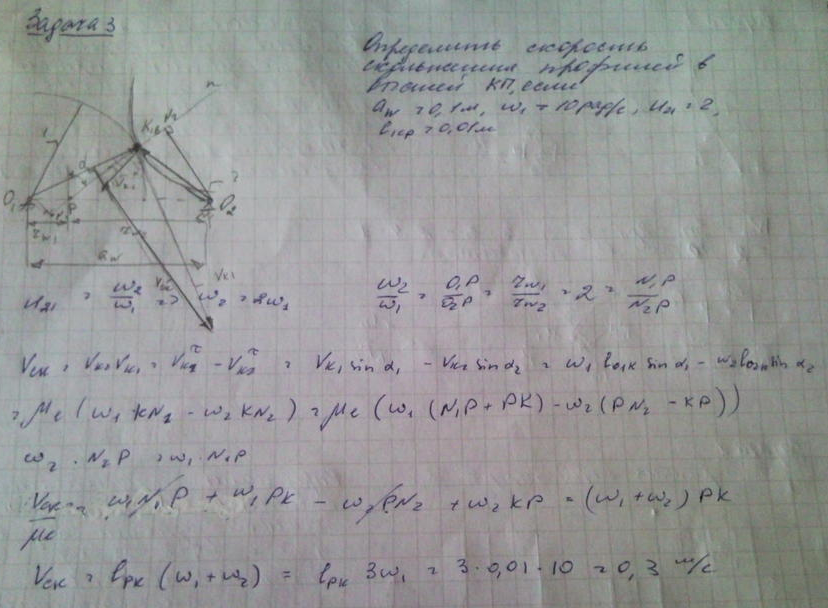 Задача 3
Определить скорость
скольжения профилей в
высшей КП, если
a_w = 0,1м, ω₁ = 10 рад/с, u₂₁ = 2,
l_1кр = 0,01м
n
K N₂
1
O₁ P O₂
τ_w1
a_w V_K1
u₂₁ = ω₂/ω₁ => ω₂ = 2ω₁ ω₂/ω₁ = O₁P/O₂P = τ_w1/τ_w2 = 2 = N₁P/N₂P
V_ск = V_K2V_K1 = V_K1^τ - V_K2^τ = V_K1 sin α₁ - V_K2 sin α₂ = ω₁ l_O1K sin α₁ - ω₂ l_O2K sin α₂
= μ_l (ω₁ KN₁ - ω₂ KN₂) = μ_l (ω₁ (N₁P + PK) - ω₂ (PN₂ - KP))
ω₂ · N₂P = ω₁ · N₁P
V_ск/μ_l = ω₁N₁P + ω₁PK - ω₂PN₂ + ω₂KP = (ω₁ + ω₂) PK
V_ск = l_PK (ω₁ + ω₂) = l_PK 3ω₁ = 3 · 0,01 · 10 = 0,3 м/с